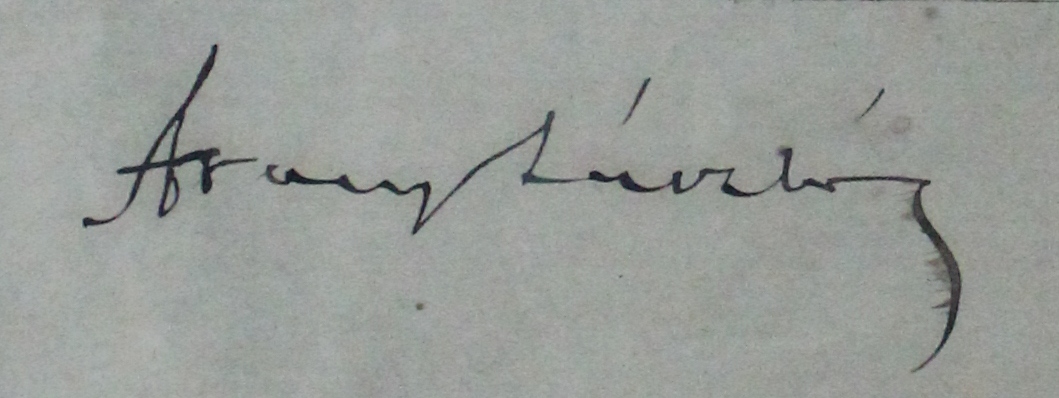 Arany László